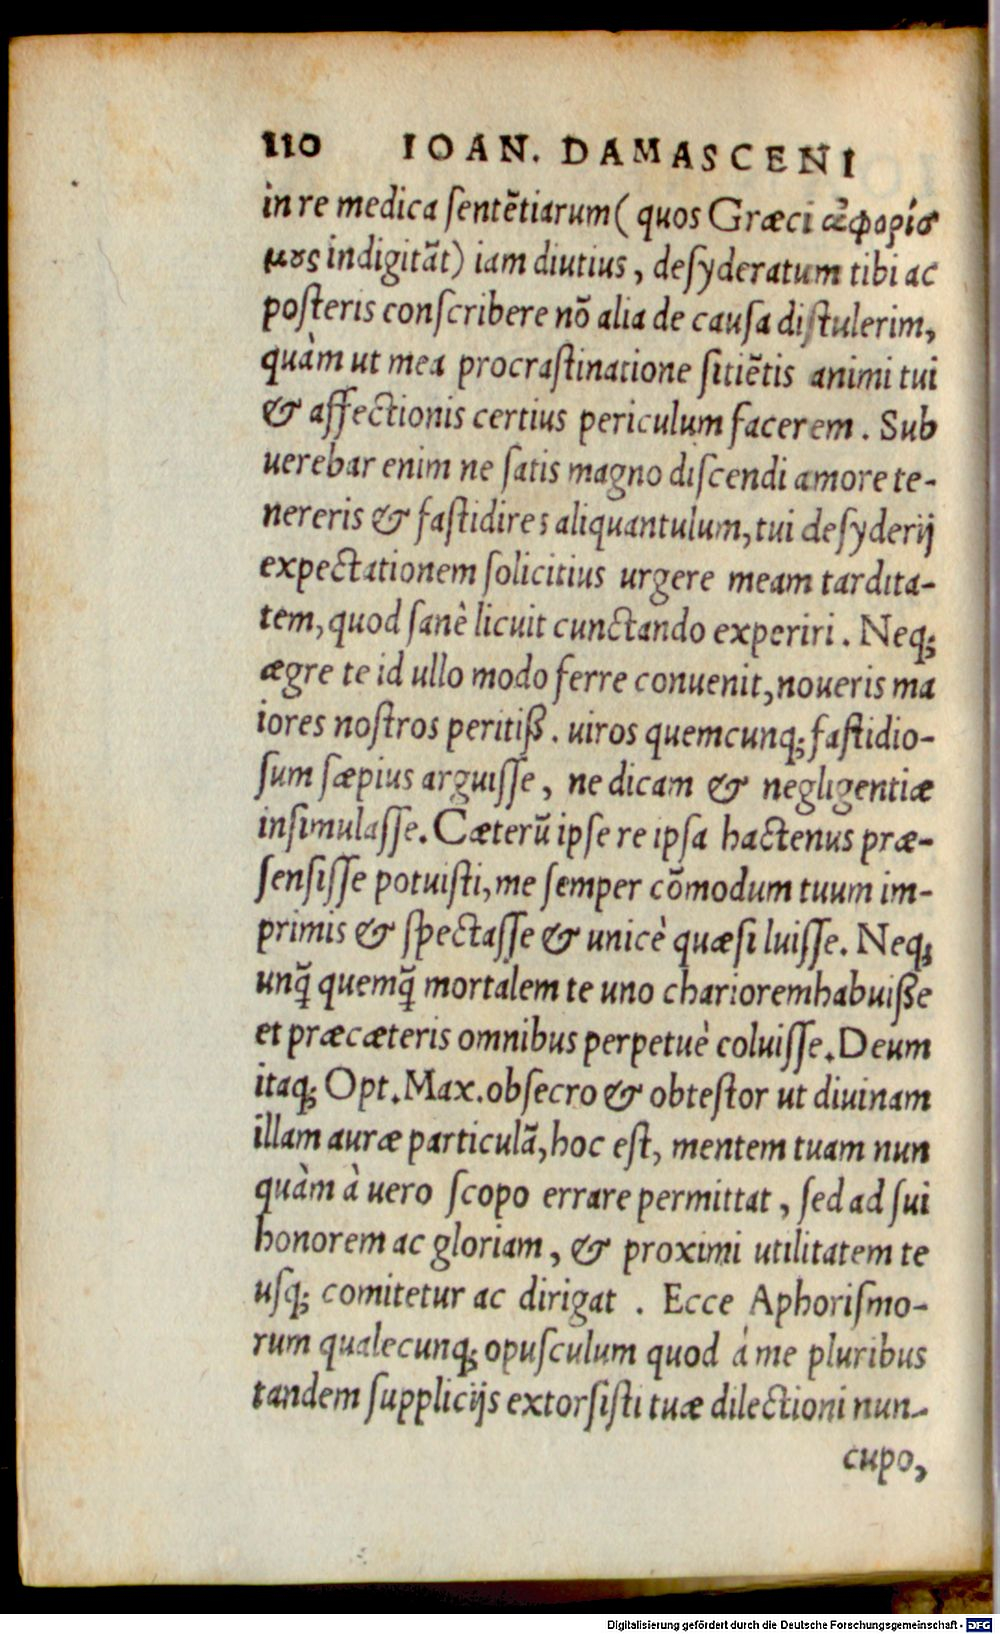 110 IOAN. DAMASCENI
in re medica ſentẽtiarum ( quos Græci ἀφορίσ
μȣς indigitãt) iam diutius, deſyderatum tibi ac
poſteris conſcribere nõ alia de cauſa diſtulerim,
quàm ut mea procraſtinatione ſitiẽtis animi tui
& affectionis certius periculum facerem. Sub
uerebar enim ne ſatis magno diſcendi amore te-
nereris & faſtidires aliquantulum, tui deſyderij
expectationem ſolicitius urgere meam tardita-
tem, quod ſanè licuit cunctando experiri. Neq;
ægre te id ullo modo ferre conuenit, noueris ma
iores noſtros peritiß. uiros quemcunq; faſtidio-
ſum ſæpius arguiſſe, ne dicam & negligentiæ
inſimulaſſe. Cæterũ ipſe re ipſa hactenus præ-
ſenſiſſe potuiſti, me ſemper cõmodum tuum im-
primis & ſpectaſſe & unicè quæſi luiſſe. Neq;
unq̃ quemq̃ mortalem te uno chariorem habuiße
et præ cæteris omnibus perpetuè coluiſſe. Deum
itaq; Opt. Max. obſecro & obteſtor ut diuinam
illam auræ particulã, hoc eſt, mentem tuam nun
quàm à uero ſcopo errare permittat, ſed ad ſui
honorem ac gloriam, & proximi utilitatem te
uſq; comitetur ac dirigat. Ecce Aphoriſmo-
rum qualecunq; opuſculum quod à me pluribus
tandem ſupplicijs extorſiſti tuæ dilectioni nun-
cupo,
Digitalisierung gefördert durch die Deutsche Forschungsgemeinschaft - DFG